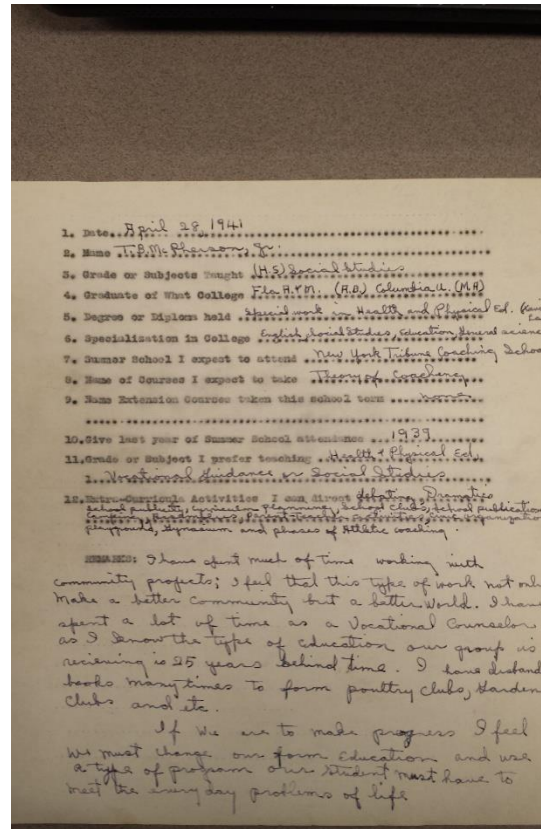 1. Date.. April 28, 1941
2. Name .. T.B. McPherson, Jr.
3. Grade or Subjects Taught (H.S) Social Studies
4. Graduate of What College Fla A.&M. (A.B.) Columbia U. (M.A)
5. Degree or Diploma held .. Special work in Health and Physical Ed.
6. Specialization in College English, Social Studies, Education, General science
7. Summer School I expect to attend .. New York Tribune Coaching School
8. Name of Courses I expect to take .. Theory of Coaching
9. Name Extension Courses taken this school term .. none
10. Give last year of Summer School attendance ... 1939
11. Grade or Subject I prefer teaching .. Health & Physical Ed.
1. Vocational Guidance or Social Studies
12. Extra-Curricula Activities I can direct debating, Dramatics
school publicity, curriculum planning, School Clubs, school publication
Parent-Teacher activities, organization
playgrounds, Gymnasium and phases of Athletic coaching.
REMARKS: I have spent much of time working with
community projects; I feel that this type of work not only
make a better community but a better world. I have
spent a lot of time as a Vocational Counselor
as I know the type of education our group is
recieving is 25 years behind time. I have disband
books many times to form poultry clubs, Garden
Clubs and etc.
If we are to make progress I feel
we must change our form Education and use
a type of program our Student must have to
meet the everyday problems of life